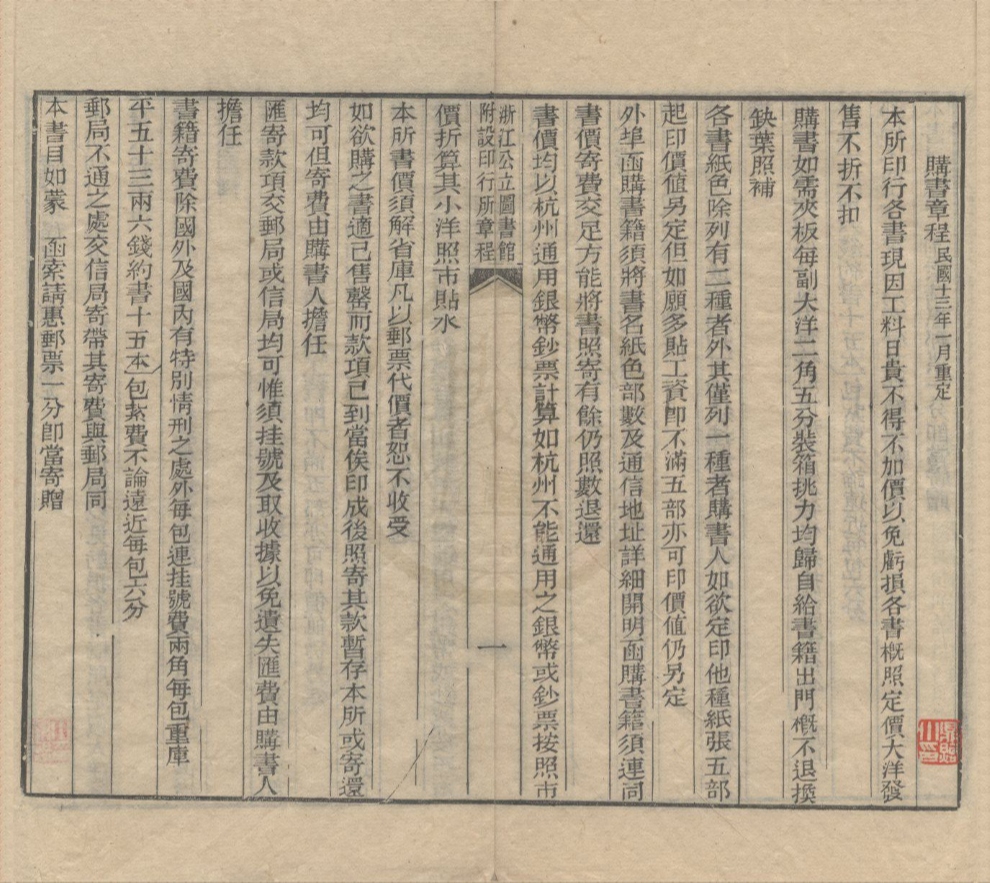 購書章程民國十三年一月重定
本所印行各書現因工料日貴不得不加價以免虧損各書概照定價大洋發
售不折不扣
購書如需夾板每副大洋二角五分裝箱挑力均歸自給書籍出門概不退換
缺葉照補
各書紙色除列有二種者外其僅列一種者購書人如欲定印他種紙張五部
起印價值另定但如願多貼工資卽不滿五部亦可印價值仍另定
外埠函購書籍須將書名紙色部數及通信地址詳細開明函購書籍須連同
書價寄費交足方能將書照寄有餘仍照數退還
書價均以杭州通用銀幣鈔票計算如杭州不能通用之銀幣或鈔票按照市
浙江公立圖書館
附設印行所章程
一
價折算其小洋照市貼水
本所書價須解省庫凡以郵票代價者恕不收受
如欲購之書適已售罄而款項已到當俟印成後照寄其款暫存本所或寄還
均可但寄費由購書人擔任
匯寄款項交郵局或信局均可惟須挂號及取收據以免遺失匯費由購書人
擔任
書籍寄費除國外及國內有特別情刑之處外每包連挂號費兩角每包重庫
平五十三兩六錢約書十五本包紮費不論遠近每包六分
郵局不通之處交信局寄帶其寄費與郵局同
本書目如蒙 函索請惠郵票一分卽當寄贈